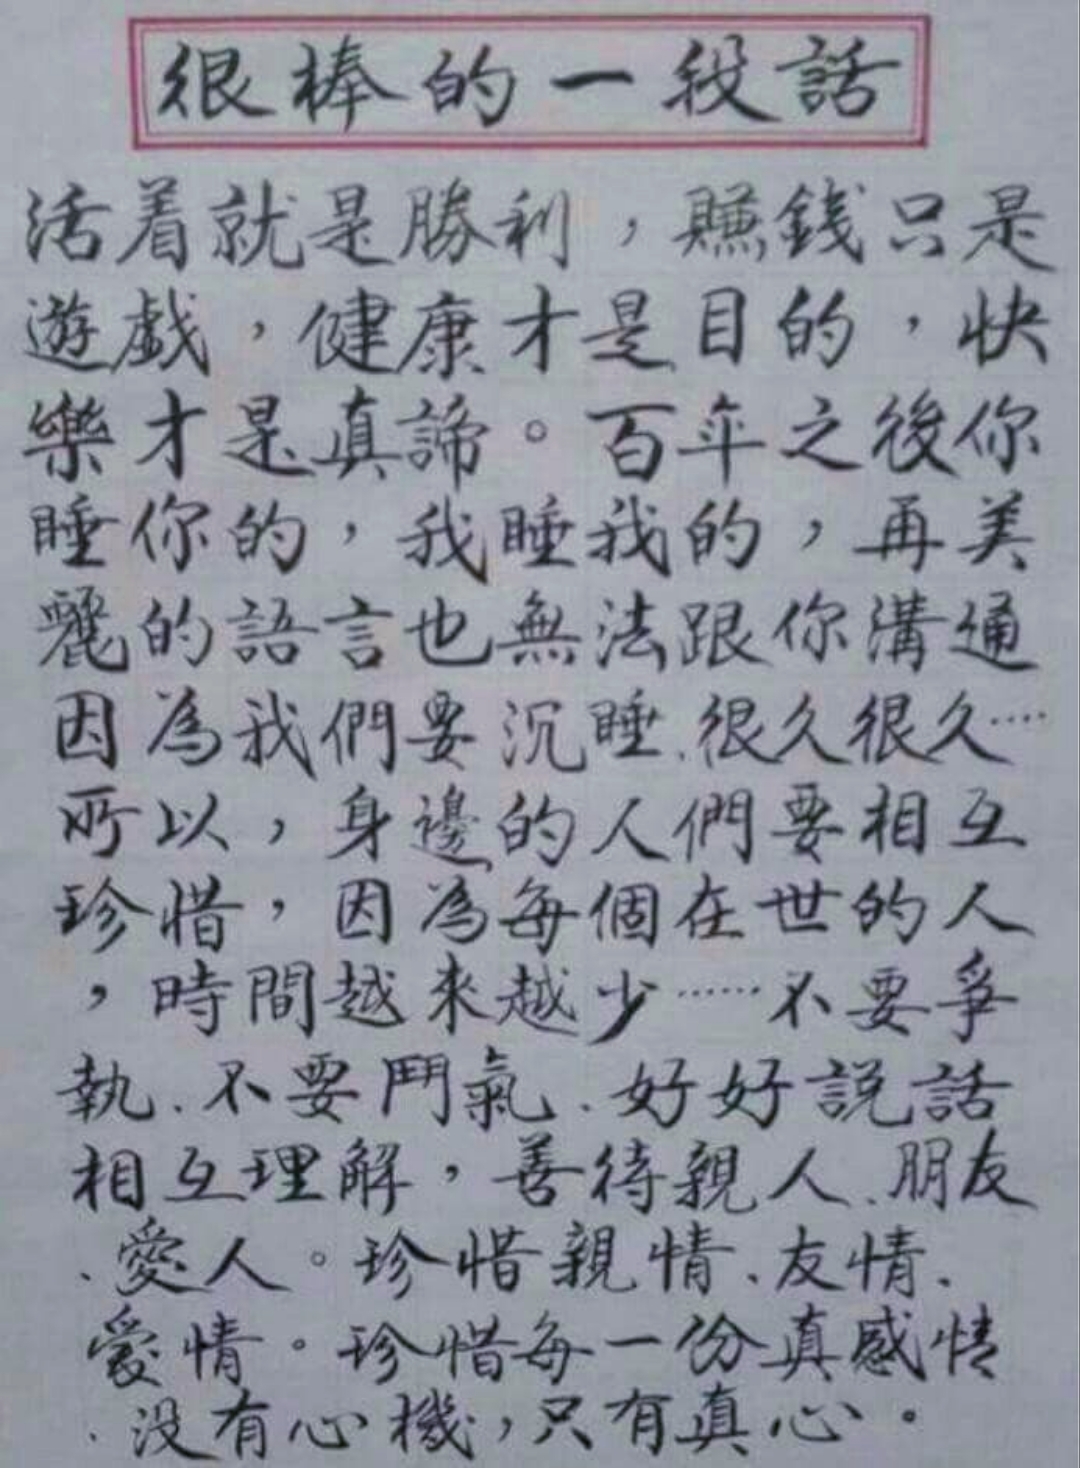 很棒的一段話
活着就是勝利，賺錢只是
遊戲，健康才是目的，快
樂才是真諦。百年之後你
睡你的，我睡我的，再美
麗的語言也無法跟你溝通
因為我們要沉睡、很久很久……
所以，身邊的人們要相互
珍惜，因為每個在世的人
，時間越來越少……不要爭
執、不要鬥氣、好好説話
相互理解，善待親人、朋友
、愛人。珍惜親情、友情、
愛情。珍惜每一份真感情
、没有心機，只有真心。